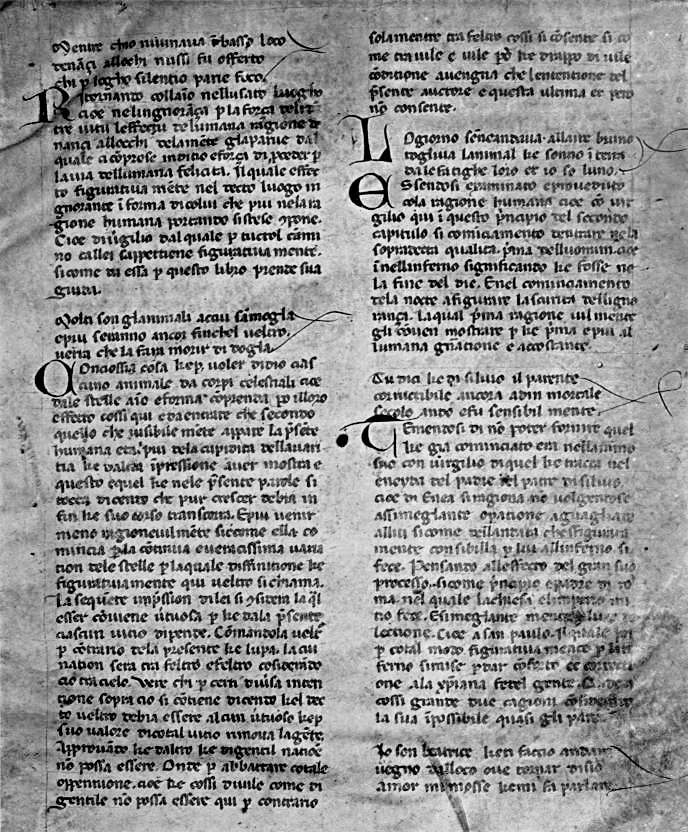 Mentre chio ruuinaua ĩbasso loco
denãçi alochi mi si fu offerto
chi p lõgho silentio parea fioco.
Ritornando collaio nellusato luogho
cioe nelingnorãça p la força de tre
uitii leffectu de lumana ragione
nançi allocchi dela mẽte gla parue dal
quale cõprese inditio e força di pceder p
la uia dellumana felicita. Il quale effec
to figuratiua mẽte nel decto luogo in
gnorante ĩ forma di colui che piu nela ra
gione humana portando si stese ‧ pone.
Cioe di uirgilio dal quale p tuctol cãmi
no callei sappertiene figuratiua mente.
si come da essa p questo libro prende sua
guida.
Molti son glanimali acui samoglia
e piu saranno ancor finchel ueltro.
uerra che la fara morir di dogla
Conciossia cosa ke p uoler didio cias
cuno animale da corpi celestiali cioe
dale stelle aio e forma cõprenda pо il loro
effecto cossi qui e da entrare che secondo
quello che uisibile mẽte appare la psẽte
humana eta piu dela cupidita dellauari
tia ke daltra ĩpressione auer mostra e
questo e quel ke nele psente parole si
tocca dicendo che pur crescer debia in
fin ke suo corso transcorra. E piu uenir
meno ragioneuilmẽte si come ella co
mincia p la cõtinua e ueracissima uaria
tion dele stelle p la quale diffinitione ke
figuratiuamente qui ueltro si chiama.
La seguẽte impssion di lei si cõsidera la q̃l
esser cõuiene uirtuosa p ke dala psente
ciascun uitio dipende. Comãdola uelt
p cõtrario dela presente ke lupa. la cui
nation sera tra feltro e feltro cosiderãdo
cio tra cielo. Vere chi p certi diuisa inten
tione sopra cio si cõtiene dicendo kel dec
to ueltro debia essere alcun uirtuoso ke p
suo valore dicotal uitio rinoua la gẽte
Approuãdo ke daltro ke di gentil natiõe
nõ possa essere. Onde p abbattare cotale
oppentione. cioe ke cossi di uile come di
gentile nõ possa essere qui p contrario
solamente tra feltro cossi si cõsente si co
me tra uile e uile pо ke drappo di uile
cõditione auengna che lententione del
psente auctore e questa ultima ce pero
nõ consente.
Lo giorno sen andaua ‧ all aire bruno
togliua lanimal ke sonno ĩ terra
da le fatighe loro et io so luno.
Essendosi examinato e proueduto
cola ragione humana cioe cõ uir
gilio qui ĩ questo pncipio del secondo
capitulo si comiciamento denotare nela
sopradecta qualita. pma dell uomini. cioe
ĩ nellinferno significando ke fosse ne
la fine del die. E nel cominciamento
dela nocte a figurare la scurita delligno
rança. La qual pma ragione uil mente
gli cõuien mostrare p ke pma e piu al
lumana gnãtione e accostante.
Tu dici ke di siluio il parente
corructibile ancora ad in mortale
secolo ando e fu sensibil mente.
Temendosi di nõ poter fornire quel
ke gia cominciato era nell animo
suo con uirgilio di quel ke tracta nel
eneyda del padre del padre di siluio.
cioe di Enea si ragiona nõ uolgendose
assimeglante opatione aguaglare
allui si come dellandata che figuratiua
mente con sibilla p lui allinferno si
fece. Pensando alleffecto del gran suo
processo. si come pncipio e padre di ro
ma. nel quale la chiesa e limperio ini
tio fece. E simeglante mente
lectione. Cioe a san paulo. al quale poi
p cotal modo figuratiua mente p lin
ferno si mise p dar cõforto et correcti
one ala xpiana fedel gente.
cossi grande due cagioni
la sua ĩpossibile quasi gli pare.
Io son beatrice ke ti faccio andare
uegno dal loco oue tornar disio
amor mi mosse ke mi fa parlare.